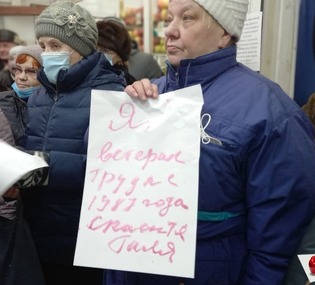 Я,
ветеран
труда с
1987 года
спасите
Галя